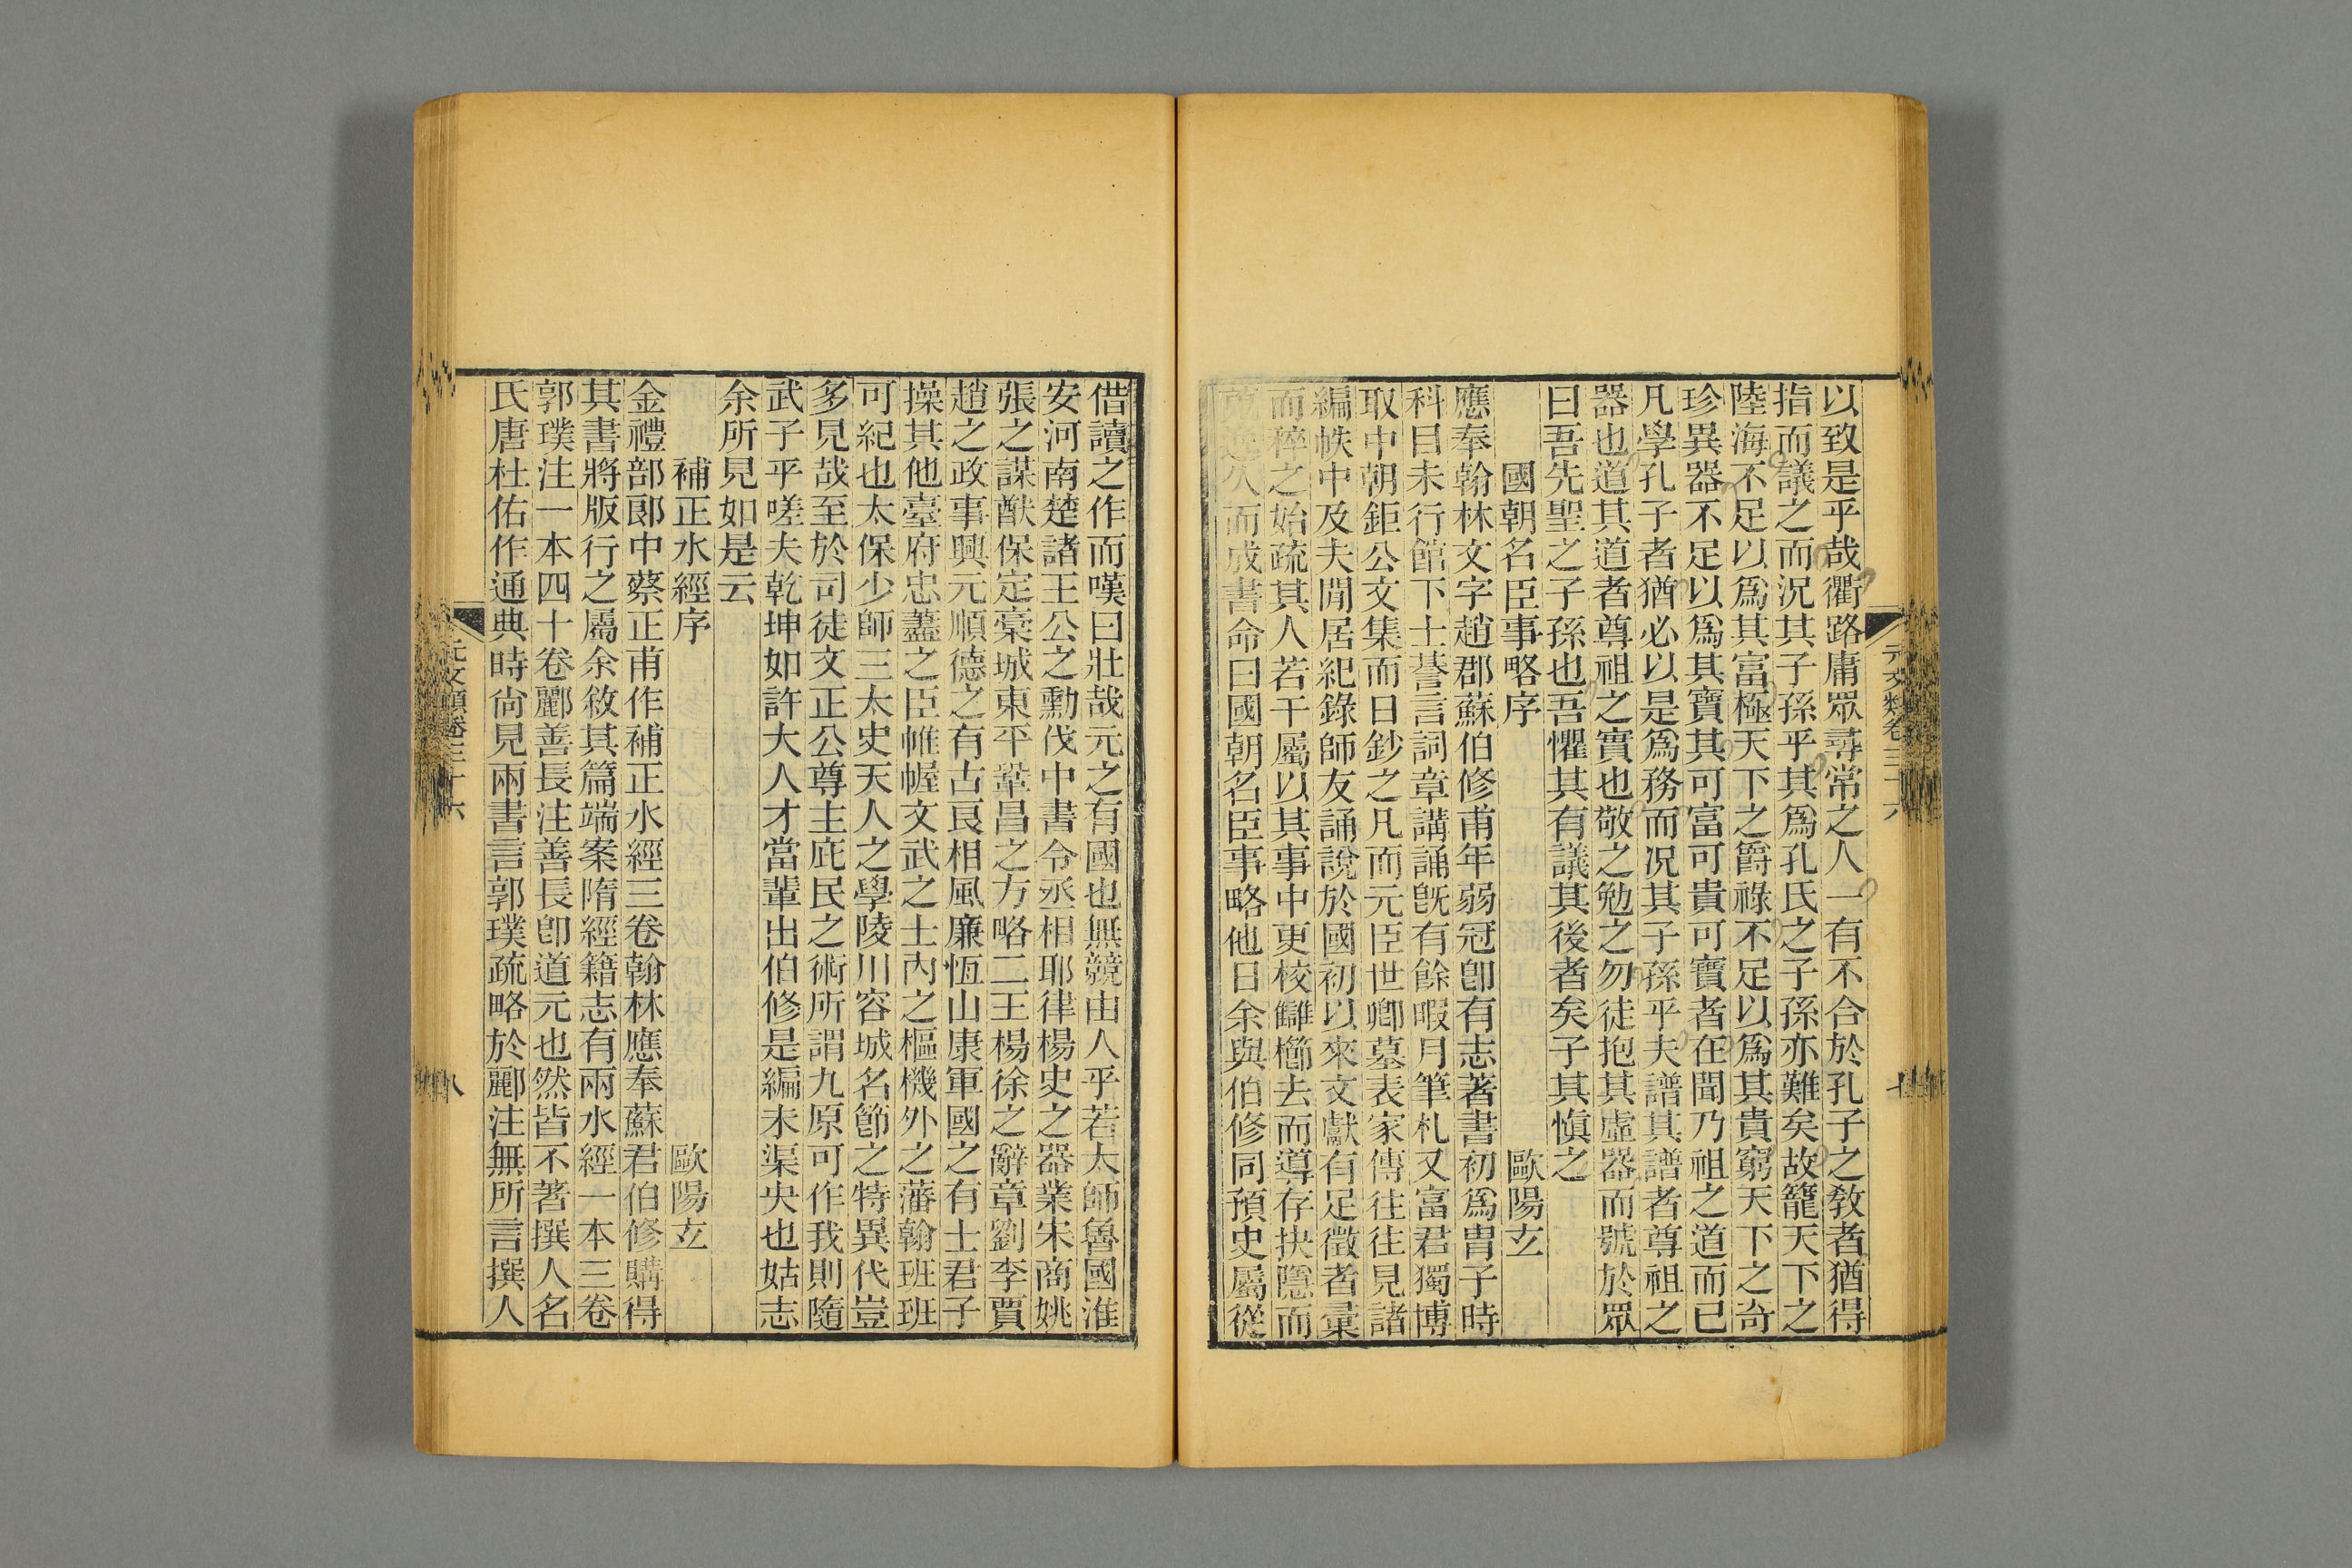 元文類卷三十六
七
以致是乎哉衢路庸眾尋常之人一有不合於孔子之敎者猶得
指而議之而況其子孫乎其爲孔氏之子孫亦難矣故籠天下之
陸海不足以爲其富極天下之爵祿不足以爲其貴窮天下之奇
珍異器不足以爲其寶其可富可貴可寶者在聞乃祖之道而已
凡學孔子者猶必以是爲務而況其子孫乎夫譜其譜者尊祖之
器也道其道者尊祖之實也敬之勉之勿徒抱其虛器而號於眾
曰吾先聖之子孫也吾懼其有議其後者矣子其愼之
國朝名臣事略序 歐陽玄
應奉翰林文字趙郡蘇伯修甫年弱冠卽有志著書初爲胄子時
科目未行館下士䜿言詞章講誦旣有餘暇月筆札又富君獨博
取中朝鉅公文集而日鈔之凡而元臣世卿墓表家傳往往見諸
編帙中及夫閒居紀錄師友誦說於國初以來文獻有足徵者彙
而稡之始疏其人若干屬以其事中更校讎櫛去而導存抉隱而
久而成書命曰國朝名臣事略他日余與伯修同預史屬從
借讀之作而嘆曰壯哉元之有國也無競由人乎若太師魯國淮
安河南楚諸王公之勳伐中書令丞相耶律楊史之器業宋商姚
張之謀猷保定藁城東平鞏昌之方略二王楊徐之辭章劉李賈
趙之政事興元順德之有古良相風廉恆山康軍國之有士君子
操其他臺府忠藎之臣帷幄文武之士內之樞機外之藩翰班班
可紀也太保少師三太史天人之學陵川容城名節之特異代豈
多見哉至於司徒文正公尊主庇民之術所謂九原可作我則隨
武子乎嗟夫乾坤如許大人才當輩出伯修是編未渠央也姑志
余所見如是云
補正水經序 歐陽玄
金禮部郎中蔡正甫作補正水經三卷翰林應奉蘇君伯修購得
其書將版行之屬余敘其篇端案隋經籍志有兩水經一本三卷
郭璞注一本四十卷酈善長注善長卽道元也然皆不著撰人名
氏唐杜佑作通典時尙見兩書言郭璞疏略於酈注無所言撰人
元文類卷三十六
八